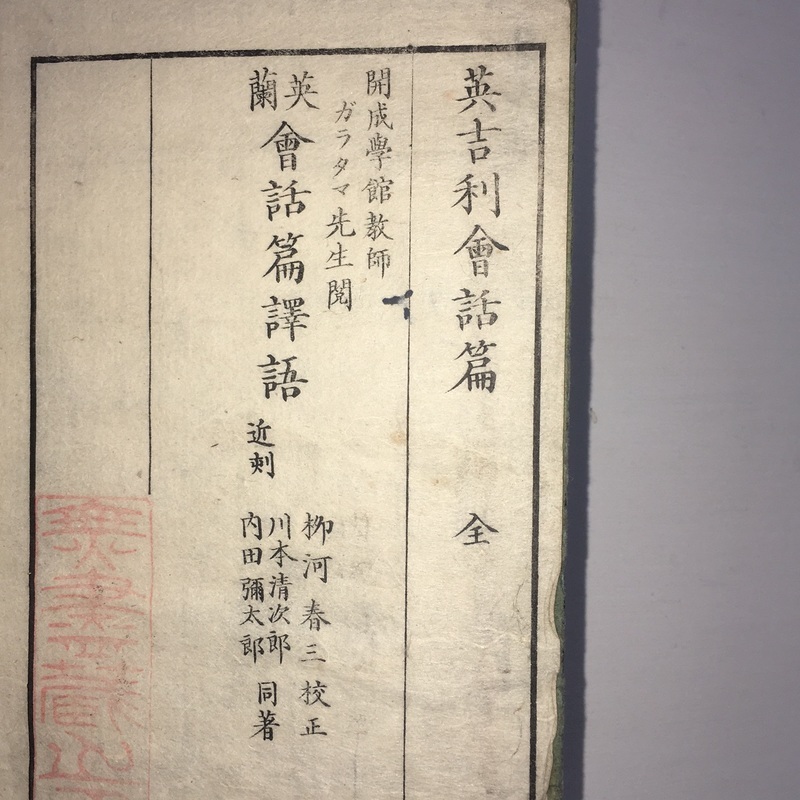 英吉利會話篇 全
開成學館教師
ガラタマ先生閲
英蘭會話篇譯語 近刻
柳河春三校正
川本清次郎
内田彌太郎
同著
無盡藏